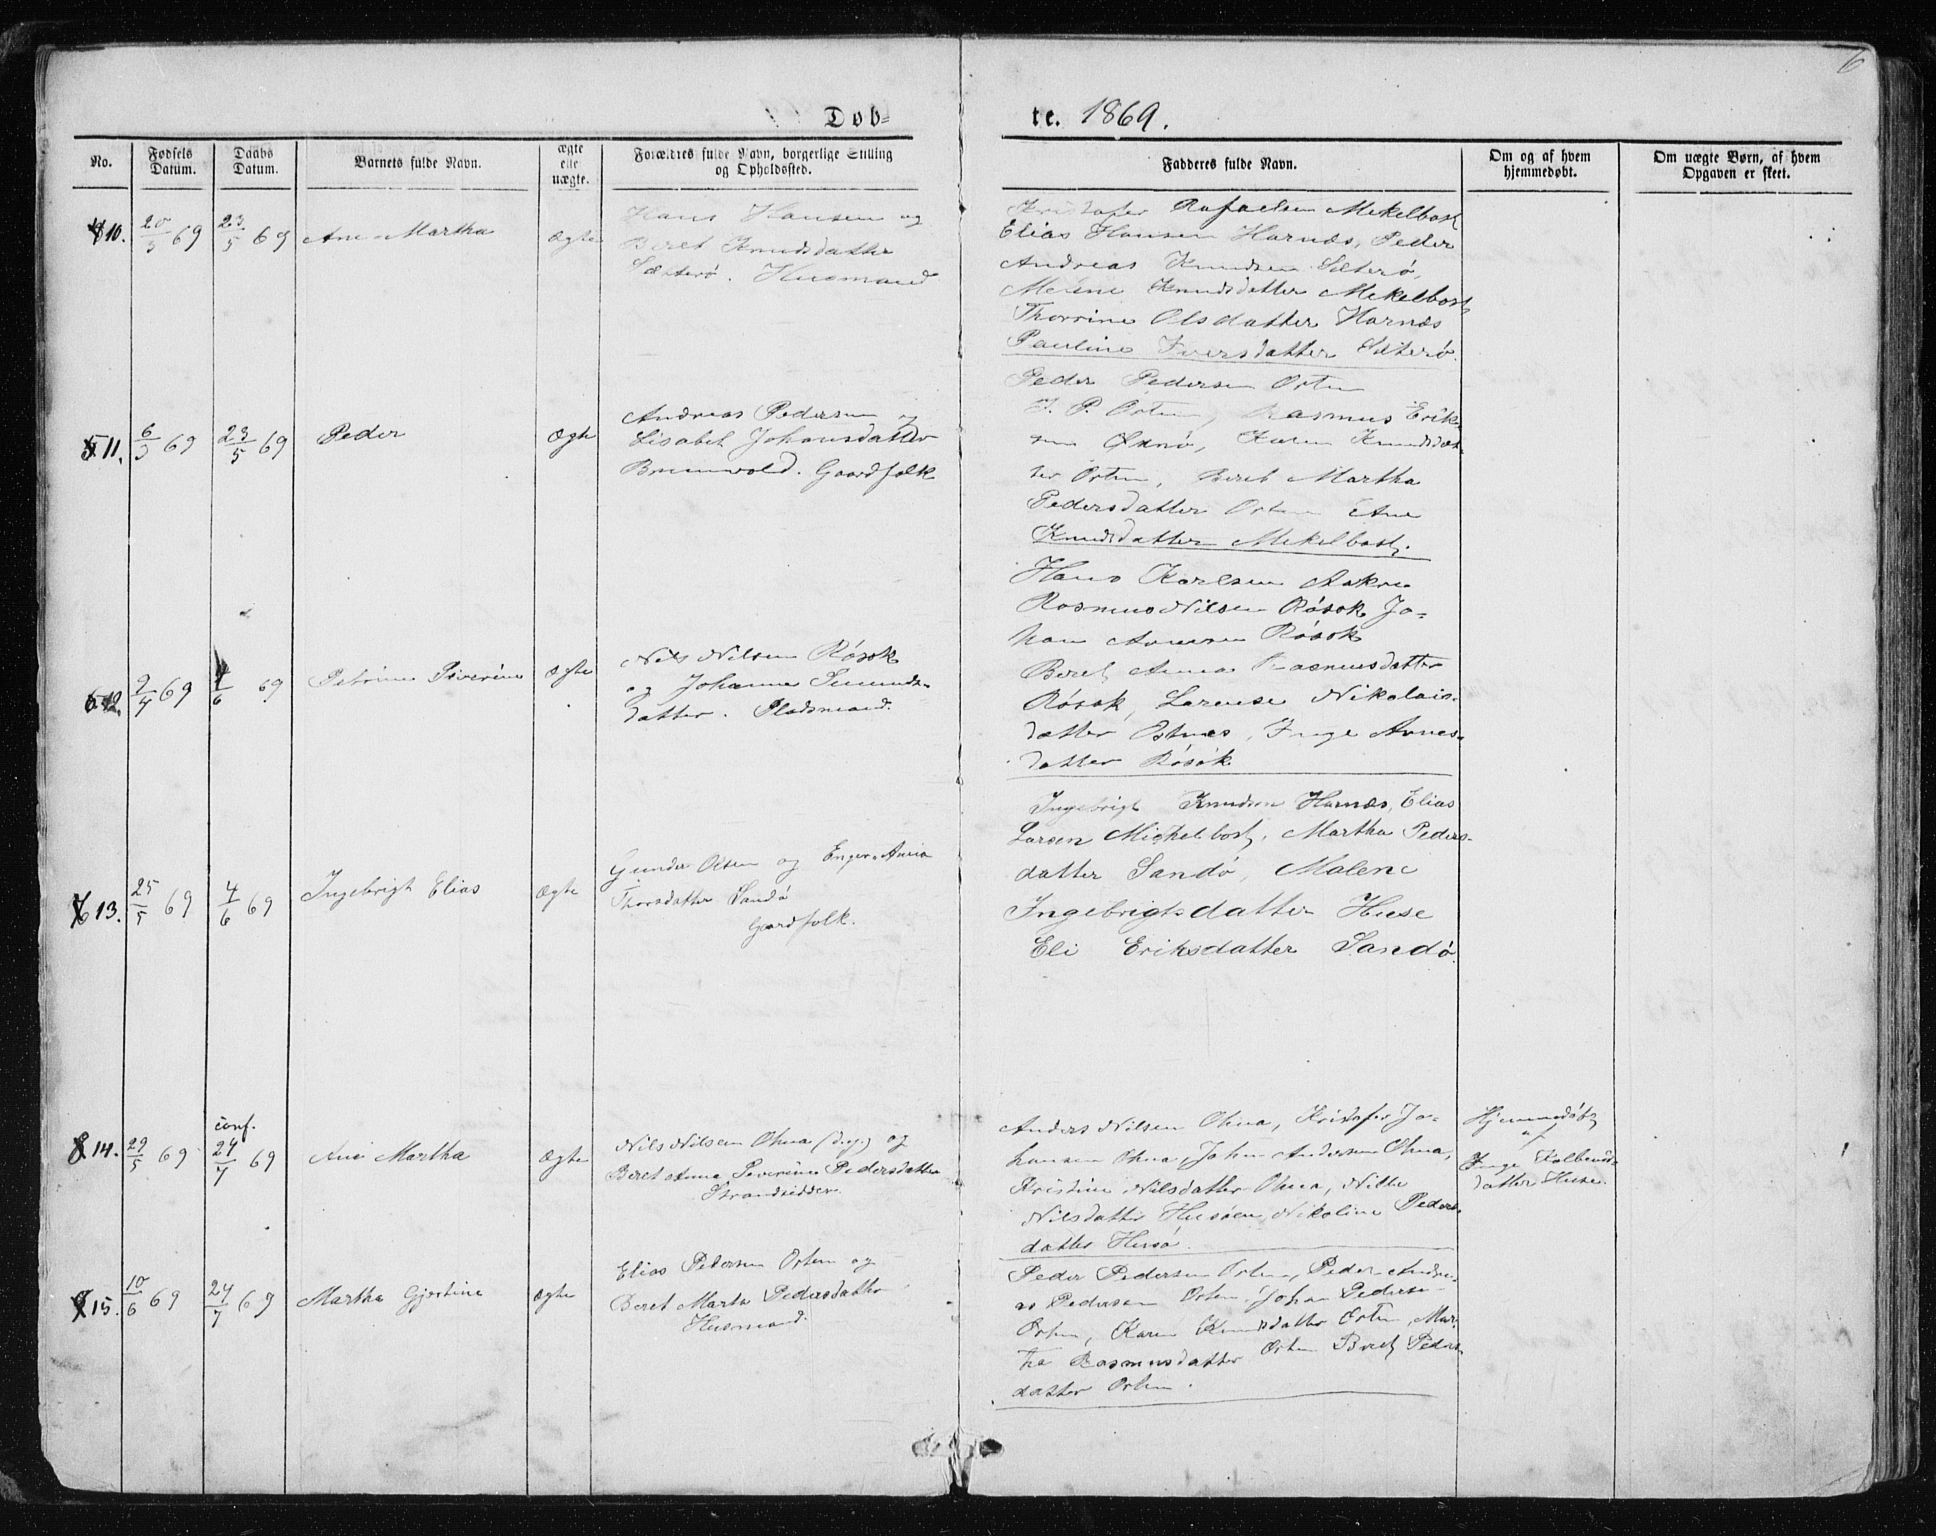 6
Døb=
te. 1869.
No.
Fødsels Datum.
Daabs Datum.
Barnets fulde Navn.
ægte elle uægte.
Forældres fulde Navn, borgerlige Stilling og Opholdssted.
Fadderes fulde Navn.
Om og af hvem hjemmedøbt.
Om uægte Børn, af hvem Opgaven er skeet.
10.
20/3 69
23/5 69
Ane Martha
Ægte
Hans Hansen og
Beret Knudsdatter
Sæterø. Husmand
Kristofer Rafaelsen Mekelbost
Elias Hansen Harnæs, Peder
Andreas Knudsen Sæterø,
Malene Knudsdatter Mekelbost
Thorrine Olsdatter Harnæs
Pauline Iversdatter Sæterø.
11.
6/3 69
23/5 69
Peder
Ægte
Andreas Pedersen og
Lisabet Johansdatter
Brunvold. Gaardfolk
Peder Pedersen Orten
J. P. Orten, Rasmus Erik-
sen Oxnø, Karen Knudsdat-
ter Orten, Beret Martha
Pedersdatter Orten Ane
Knudsdatter Mekelbost.
12.
2/4 69
4/6 69
Petrine Siverine
Ægte
Nils Nilsen Røsok
og Johanna Simunds-
datter. Pladsmand.
Hans Karlsen Aakre
Rasmus Nilsen Røsok Jo-
han Arnesen Røsok
Beret Anna Rasmusdatter
Røsok, Larense Nikolais-
datter Ostnæs, Inge Arnes-
datter Røsok
13.
25/5 69
4/6 69
Ingebrigt Elias
Ægte
Gunder Olsen og Enger Anna
Thorsdatter Sandø
Gaardfolk.
Ingebrigt Knudsen Harnæs, Elias
Larsen Michelbost, Martha Peders-
datter Sandø, Malene
Ingebrigtsdatter Huse
Eli Eriksdatter Sandø.
14.
29/5 69
conf.
24/7 69
Ane Martha
Ægte
Nils Nilsen Ohna (d.y.) og
Beret Anna Severine Pedersdatter
Strandsidder.
Anders Nilsen Ohna, Kristofer Jo-
hansen Ohna, John Andersen Ohna,
Kristine Nilsdatter Ohna, Nille
Nilsdatter Husøen, Nikoline Peders-
datter Husø.
Hjemmedøbt
af
Inge Kolbens-
datter Huse.
15.
10/6 69
24/7 69
Martha Gjertine
Ægte
Elias Pedersen Orten og
Beret Marta Pedersdatter
Husmand.
Peder Pedersen Orten, Peder Andre-
as Pedersen Orten, Johan Pedersen
Orten, Karen Knudsdatter Orten, Mar-
the Rasmusdatter Orten Beret Peders-
datter Orten.